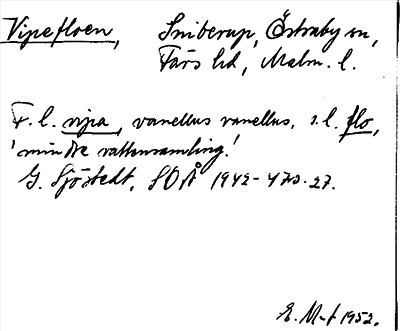 Vipefloen, Sniberup, Östraby sn,
Färs hd, Malm. l.
F. l. vipa, vanellus vanellus, s.l. flo,
'mindre vattensamling.'
G. Sjöstedt, SOÅ 1942-47, s. 27.
E. M-f 1952.